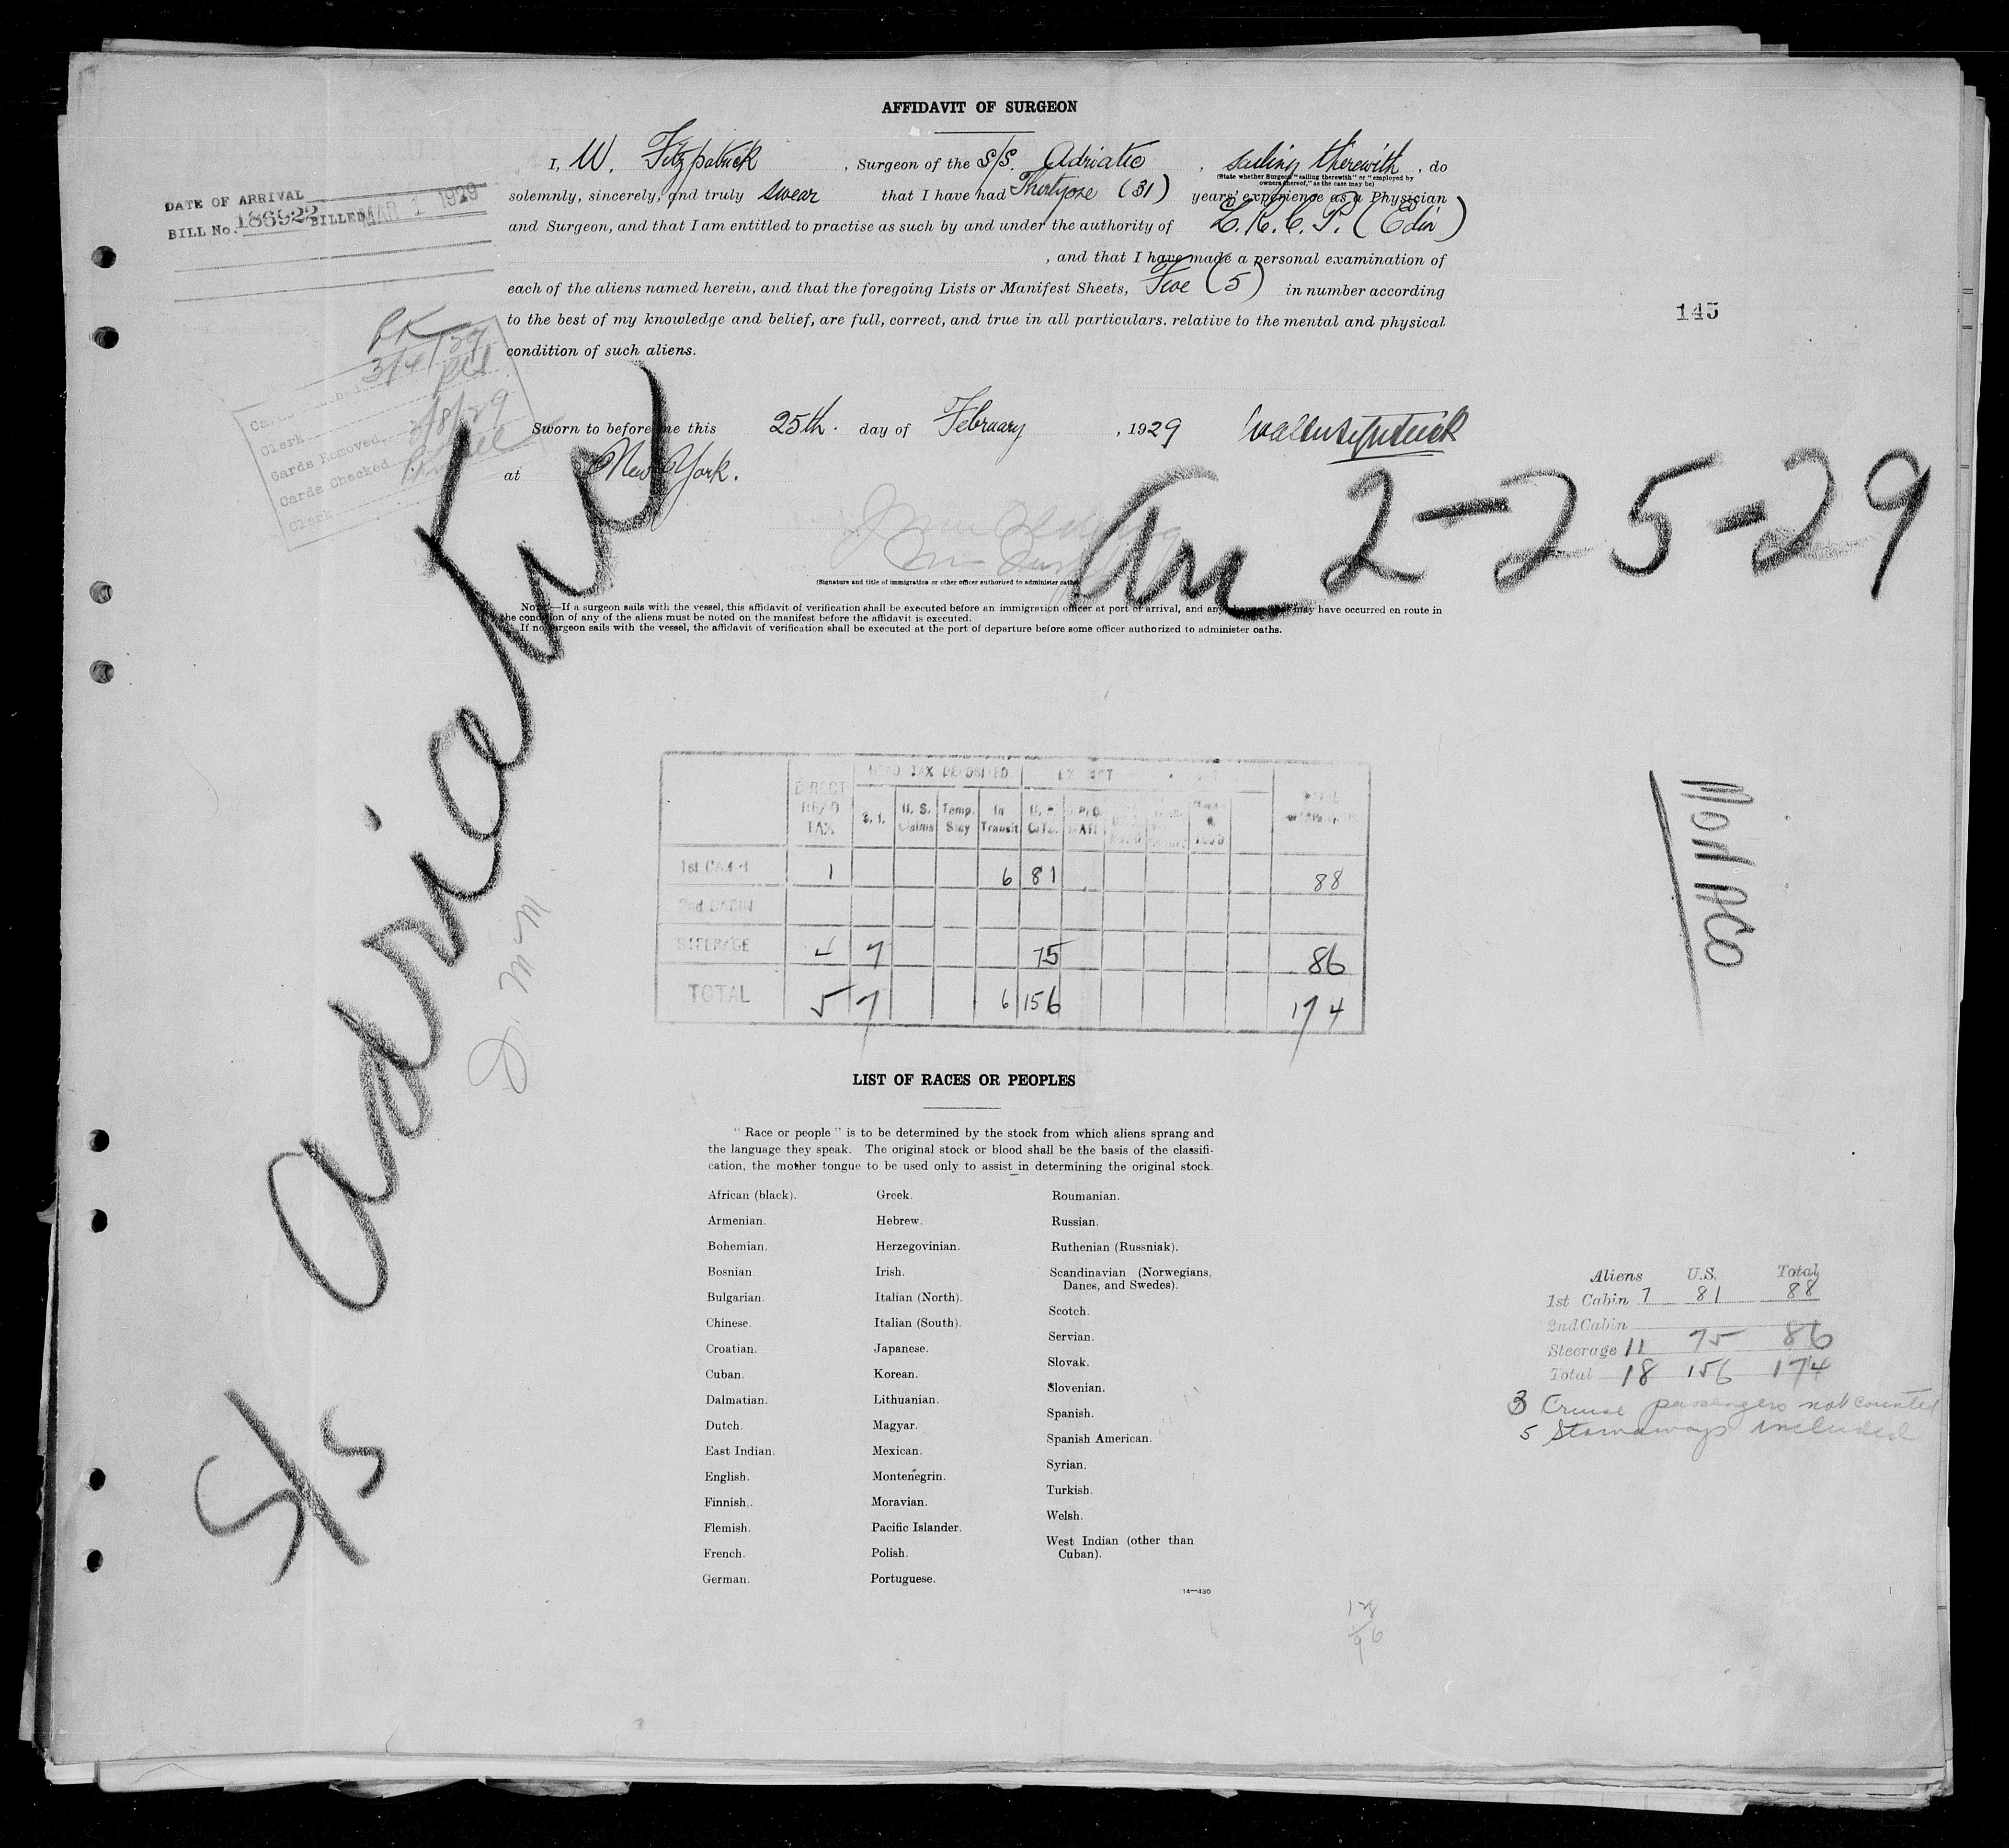 AFFIDAVIT OF SURGEON
I, W. Fitzpatrick, Surgeon of the S/S. Adriatic, sailing therewith, do
(State whether Surgeon "sailing therewith" or "employed by owners thereof," as the case may be)
solemnly, sincerely, and truly swear that I have had Thirtyone (31) years' experience as a Physician
and Surgeon, and that I am entitled to practise as such by and under the authority of L.R.C.P. (Edin)
, and that I have made a personal examination of
each of the aliens named herein, and that the foregoing Lists or Manifest Sheets, Five (5) in number according
to the best of my knowledge and belief, are full, correct, and true in all particulars. relative to the mental and physical
condition of such aliens.
DATE OF ARRIVAL
BILL No. 186922 BILLED MAR 1 1929
145
3/4/29
Clerk
Cards Removed 3/8/29
Cards Checked
Clerk
Sworn to before me this 25th. day of February, 1929 Walter Fitzpatrick
at New York.
Arr 2-25-29
(Signature and title of immigration or other officer authorized to administer oaths)
NOTE.—If a surgeon sails with the vessel, this affidavit of verification shall be executed before an immigration officer at port of arrival, and any may have occurred en route in
the condition of any of the aliens must be noted on the manifest before the affidavit is executed.
If no surgeon sails with the vessel, the affidavit of verification shall be executed at the port of departure before some officer authorized to administer oaths.
S/S Adriatic
D. McM
MOH ACO
DIRECT HEAD TAX HEAD TAX DEPOSITED EXEMPT TOTAL
S. I. U. S. Claims Temp. Stay In Transit U. S. Citz.
1st CABIN 1 6 81 88
2nd CABIN
STEERAGE 4 7 75 86
TOTAL 5 7 6 156 174
LIST OF RACES OR PEOPLES
"Race or people" is to be determined by the stock from which aliens sprang and
the language they speak. The original stock or blood shall be the basis of the classifi-
cation, the mother tongue to be used only to assist in determining the original stock.
African (black).
Armenian.
Bohemian.
Bosnian.
Bulgarian.
Chinese.
Croatian.
Cuban.
Dalmatian.
Dutch.
East Indian.
English.
Finnish.
Flemish.
French.
German.
Greek.
Hebrew.
Herzegovinian.
Irish.
Italian (North).
Italian (South).
Japanese.
Korean.
Lithuanian.
Magyar.
Mexican.
Montenegrin.
Moravian.
Pacific Islander.
Polish.
Portuguese.
Roumanian.
Russian.
Ruthenian (Russniak).
Scandinavian (Norwegians,
Danes, and Swedes).
Scotch.
Servian.
Slovak.
Slovenian.
Spanish.
Spanish American.
Syrian.
Turkish.
Welsh.
West Indian (other than
Cuban).
14—430
Aliens U.S. Total
1st Cabin 7 81 88
2nd Cabin
Steerage 11 75 86
Total 18 156 174
3 Cruise passengers not counted
5 Stowaways included